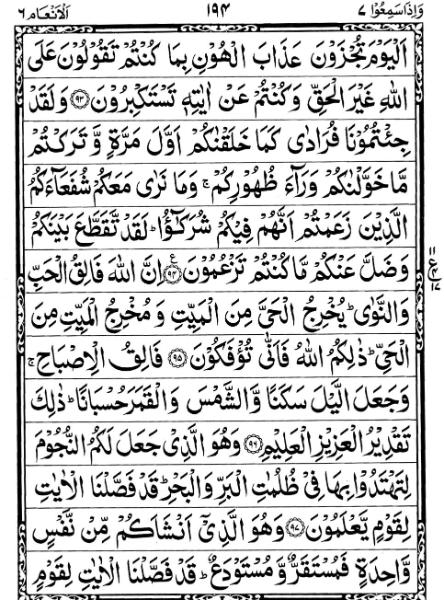 وَاِذَاسَمِعُوْا ٧ ١٩۴ اَلْاَنْعَام ٦
اَلْيَوْمَ تُجْزَوْنَ عَذَابَ الْهُوْنِ بِمَا كُنْتُمْ تَقُوْلُوْنَ عَلَى
اللّٰهِ غَيْرَ الْحَقِّ وَكُنْتُمْ عَنْ اٰيٰتِهٖ تَسْتَكْبِرُوْنَ ﴿٩٣﴾ وَلَقَدْ
جِئْتُمُوْنَا فُرَادٰى كَمَا خَلَقْنٰكُمْ اَوَّلَ مَرَّةٍ وَّتَرَكْتُمْ
مَّا خَوَّلْنٰكُمْ وَرَآءَ ظُهُوْرِكُمْ ۚ وَمَا نَرٰى مَعَكُمْ شُفَعَآءَكُمُ
الَّذِيْنَ زَعَمْتُمْ اَنَّهُمْ فِيْكُمْ شُرَكٰٓؤُا ؕ لَقَدْ تَّقَطَّعَ بَيْنَكُمْ
وَضَلَّ عَنْكُمْ مَّا كُنْتُمْ تَزْعُمُوْنَ ﴿٩۴﴾ ع اِنَّ اللّٰهَ فَالِقُ الْحَبِّ
١١ ع ۴ ١٧
وَالنَّوٰى ؕ يُخْرِجُ الْحَىَّ مِنَ الْمَيِّتِ وَمُخْرِجُ الْمَيِّتِ مِنَ
الْحَىِّ ؕ ذٰلِكُمُ اللّٰهُ فَاَنّٰى تُؤْفَكُوْنَ ﴿٩٥﴾ فَالِقُ الْاِصْبَاحِ ۚ
وَجَعَلَ الَّيْلَ سَكَنًا وَّالشَّمْسَ وَالْقَمَرَ حُسْبَانًا ؕ ذٰلِكَ
تَقْدِيْرُ الْعَزِيْزِ الْعَلِيْمِ ﴿٩٦﴾ وَهُوَ الَّذِىْ جَعَلَ لَكُمُ النُّجُوْمَ
لِتَهْتَدُوْا بِهَا فِىْ ظُلُمٰتِ الْبَرِّ وَالْبَحْرِ ؕ قَدْ فَصَّلْنَا الْاٰيٰتِ
لِقَوْمٍ يَّعْلَمُوْنَ ﴿٩٧﴾ وَهُوَ الَّذِىْۤ اَنْشَاَكُمْ مِّنْ نَّفْسٍ
وَّاحِدَةٍ فَمُسْتَقَرٌّ وَّمُسْتَوْدَعٌ ؕ قَدْ فَصَّلْنَا الْاٰيٰتِ لِقَوْمٍ